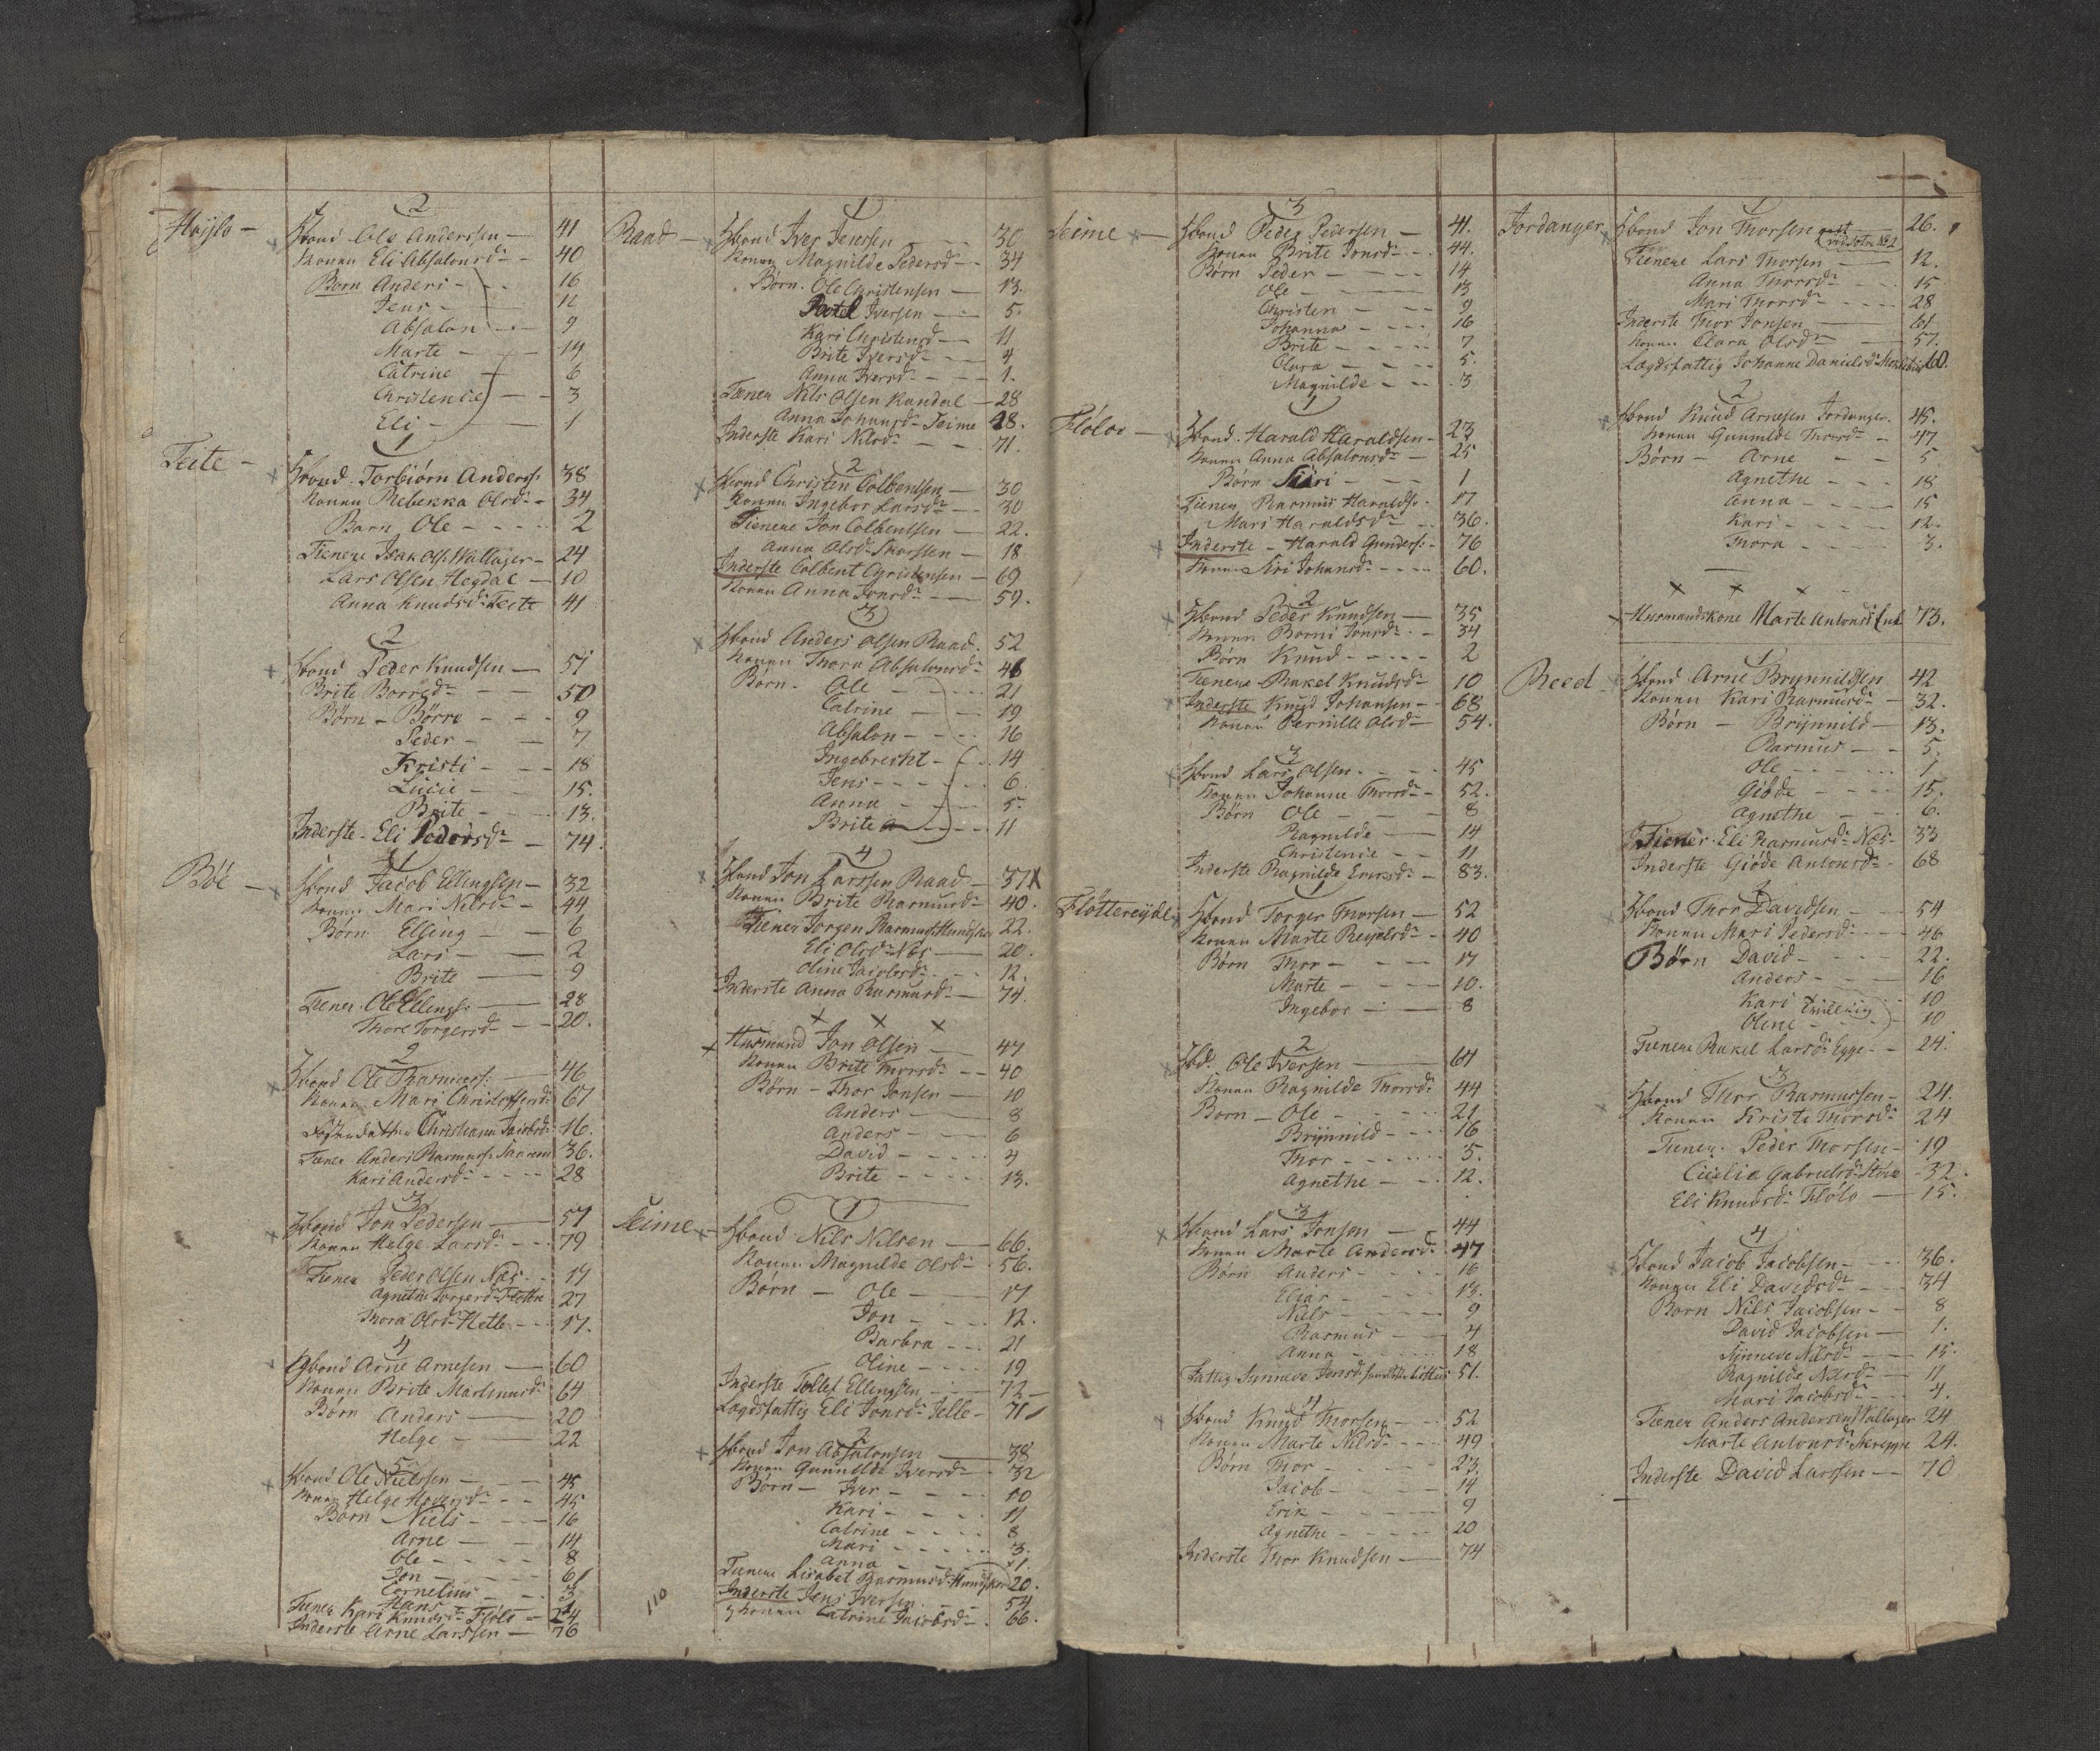 2
Høyslo - Hbond Ole Anderssen - 41
Konen Eli Absalonsd - 40
Børn Anders - 16
Jens - 12
Absalon - 9
Marte - 14
Catrine - 6
Christence - 3
Eli - 1
1
Teite - Hbond Torbiörn Anders: 38
Konen Rebekka Olsd - 34
Barn Ole - 2
Tienere Isak Ols: Wallager - 24
Lars Olsen Hegdal - 10
Anna Knudsd Teite 41
2
Hbond Peder Knudsen - 51
Brite Borresd - 50
Børn - Börre - 9
Peder - 7
Kristi - 18
Lucie - 15.
Brite - 13.
Inderste - Eli Pedersd - 74.
1
Böe - Hbond Jacob Ellingsen - 32
Konen Mari Nilsd - 44
Børn Elling - 6
Lars - 2
Brite - 9
Tiener Ole Ellings: - 28
Thore Torgersd - 20.
2
Hbond Ole Rasmus: - 46
Konen Mari Christoffersd: 67
Christiane Jacobsd: 16.
Tiener Anders Rasmus: 36.
Kari Andersd - 28
3
Hbond Jon Pedersen - 57
Konen Helge Larsd - 79
Tiener Peder Olsen Næs - 17
Agnethe Torgersd Flötte 27
Thora Olsd Hetle - 17.
4
Hbond Arne Arnesen - 60
Konen Brite Martinusd 64
Børn Anders - 20
Helge - 22
5
Hbond Ole Nielssen - 45
Konen Helge - 45
Børn Niels - 16
Arne - 14
Ole - 8
Jon - 6
Cornelius - 3
Hans -
Tiener Kari Knudsd Flölo - 24
Inderste Arne Larssen - 76
1
Raad - Hbond Iver Jenssen - 30
Konen Magnilde Pedersd - 34
Børn. Ole Christensen - 13.
Iversen - 5.
Kari Christensd - 11
Brite Iversd - 4
Anna Iversd - 1.
Tiener Nils Olsen Kandal - 28
Anna Johansd Seime 28.
Inderste Kari Nilsd - 71.
2
Hbond Christen Colbentsen - 30
Konen Ingebor Larsd - 30
Tienere Jon Colbentsen - 22.
Anna Olsd - 18
Inderste Colbent Christensen - 69
Konen Anna Jonsd - 59.
3
Hbond Anders Olsen Raad - 52
Konen Thora Absalonsd - 46
Børn - Ole - 21
Catrine - 19
Absalon - 16
Ingebrecht - 14
Jens - 6
Anna - 5
Brite - 11
4
Hbond Jon Larssen Raad - 37
Konen Brite Rasmusd - 40.
Tiener Jorgen Rasmus: 22.
Eli Olsd Næs - 20.
Oline Jacobsd - 12.
Inderste Anna Rasmusd - 74.
x x x
Husmand Jon Olsen - 47
Konen Brite Thorsd - 40
Børn - Thor Jonsen - 10
Anders - 8
Anders - 6
David - 4
Brite - 13.
1
Seime - Hbond Nils Nilsen - 66.
Konen Magnilde Olsd - 56.
Børn - Ole - 17
Jon - 12.
Barbra - 21
Oline - 19
Inderste Tollef Ellingsen - 72 -
Lægdsfattig Eli Jonsd Jelle - 71
2
Hbond Jon Absalonsen - 38
Konen Gunnilda Iversd - 32
Børn - Iver - 10
Kari - 11
Catrine - 8
Mari - 3.
Anna - 1.
Tienere Lisabet Rasmusd 20.
Inderste Jens Iversen - 54
Konen Catrine Jacobsd - 66.
110
3
Seime - Hbond Peder Pedersen - 41.
Konen Brite Jonsd - 44.
Børn Peder - 14
Ole - 13
Christen - 9
Johanna - 16
Brite - 7
Clara - 5.
Magnilde - 3
1
Flöloe - Hbond. Harald Haraldsen - 27
Konen Anna Absalonsd - 25
Børn Siri - 1
Tiener Rasmus Haralds: 17
Mari Haraldsd - 36.
Inderste - Harald Gunders: 76
Konen Siri Johansd - 60.
2
Hbond Peder Knudsen - 35
Konen Borni Jonsd - 34
Børn Knud - 2
Tienere Rakel Knudsd 10
Inderste Knud Johansen - 68
Konen Pernille Olsd - 54.
3
Hbond Lars Olsen - 45
Konen Johanne Thorsd - 52.
Børn Ole - 8
Ragnilde - 14
Christence - 11
Inderste Ragnilde Eriksd - 83.
1
Flöttereyde Hbond Torger Thorsen - 52
Konen Marte Reyelsd - 40
Børn Thor - 17
Marte - 10.
Ingebor - 8
2
Hbd. Ole Iversen - 61
Konen Ragnilde Thorsd 44
Børn - Ole - 21
Brynnild - 16
Thor - 5.
Agnethe - 12.
3
Hbond Lars Jonsen - 44
Konen Marte Andersd 47
Børn Anders - 16
Elias - 13.
Nils - 9
Rasmus - 4
Anna - 18
Fattig Synneve Jonsd 51.
4
Hbond Knud Thorsen - 52
Konen Marte Nilsd - 49
Børn Thor - 23.
Jacob - 14
Erik - 9
Agnethe - 20
Inderste Thor Knudsen - 74
1
Jordanger Hbond Jon Thorsen 26.
Tienere Lars Thorsen - 12.
Anna Thorsd - 15
Mari Thorsd - 28
Inderste Thor Jonsen - 61
Konen Clara Olsd - 57.
Lægdsfattig Johanne Danielsd 60.
2
Hbond Knud Arnesen Jordanger. 45.
Konen Gunnilde Thorsd - 47
Børn - Arne - 5
Agnethe - 18
Anna - 15
Kari - 12.
Thora - 3.
x x x
Husmandskone Marte Antonisd 73.
1
Reed - Hbond Arne Brynnildsen 42
Konen Kari Rasmusd - 32.
Børn - Brynnild - 13.
Rasmus - 5.
Ole - 1
Giöde - 15.
Agnethe - 6.
Tiener Eli Rasmusd Næs - 33
Inderste Giöde Antonsd - 68
2
Hbond Thor Davidsen - 54
Konen Mari Pedersd - 46
Børn David - 22.
Anders - 16
Kari - 10
Tvilling
Oline - 10
Tienere Rakel Larsd Egge - 24.
3
Hbond Thor Rasmussen - 24.
Konen Kristi Thorsd 24
Tiener. Peder Thorsen - 19
Cicilia Gabrielsd 32.
Eli Knudsd Flölo - 15.
4
Hbond Jacob Jacobsen - 36.
Konen Eli Davidsd - 34
Børn Nils Jacobsen - 8
David Jacobsen - 1.
Synneve Nilsd - 15.
Ragnilde Nilsd - 11
Mari Jacobsd - 4.
Tiener Anders Andersen Wallager 24
Marte Antonsd 24.
Inderste David Larssen - 70